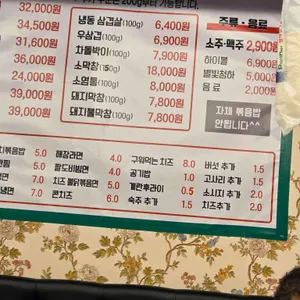 200g부터 가능합니다.
32,000
34,500원
31,600원
36,000원
24,000원
39,000원
39,000원
냉동 삼겹살(100g) 6,400원
우삼겹(100g) 6,900원
차돌박이(100g) 7,900원
소막창(150g) 18,000원
소염통(100g) 8,000원
돼지막창(100g) 7,800원
돼지불막창(100g) 7,800원
주류 · 음료
소주·맥주 2,900원
하이볼 6,900원
별빛청하 5,000원
음 료 2,000원
자체 볶음밥
안됩니다^^
치볶음밥 5.0
5.0
7.0
냉면 7.0
해장라면 4.0
팔도비빔면 4.0
치즈 불닭볶음면 5.0
콘치즈 6.0
구워먹는 치즈 8.0
공기밥 1.0
계란후라이 0.5
숙주 추가 1.5
버섯 추가 1.5
고사리 추가 1.5
소시지 추가 2.0
치즈추가 2.0